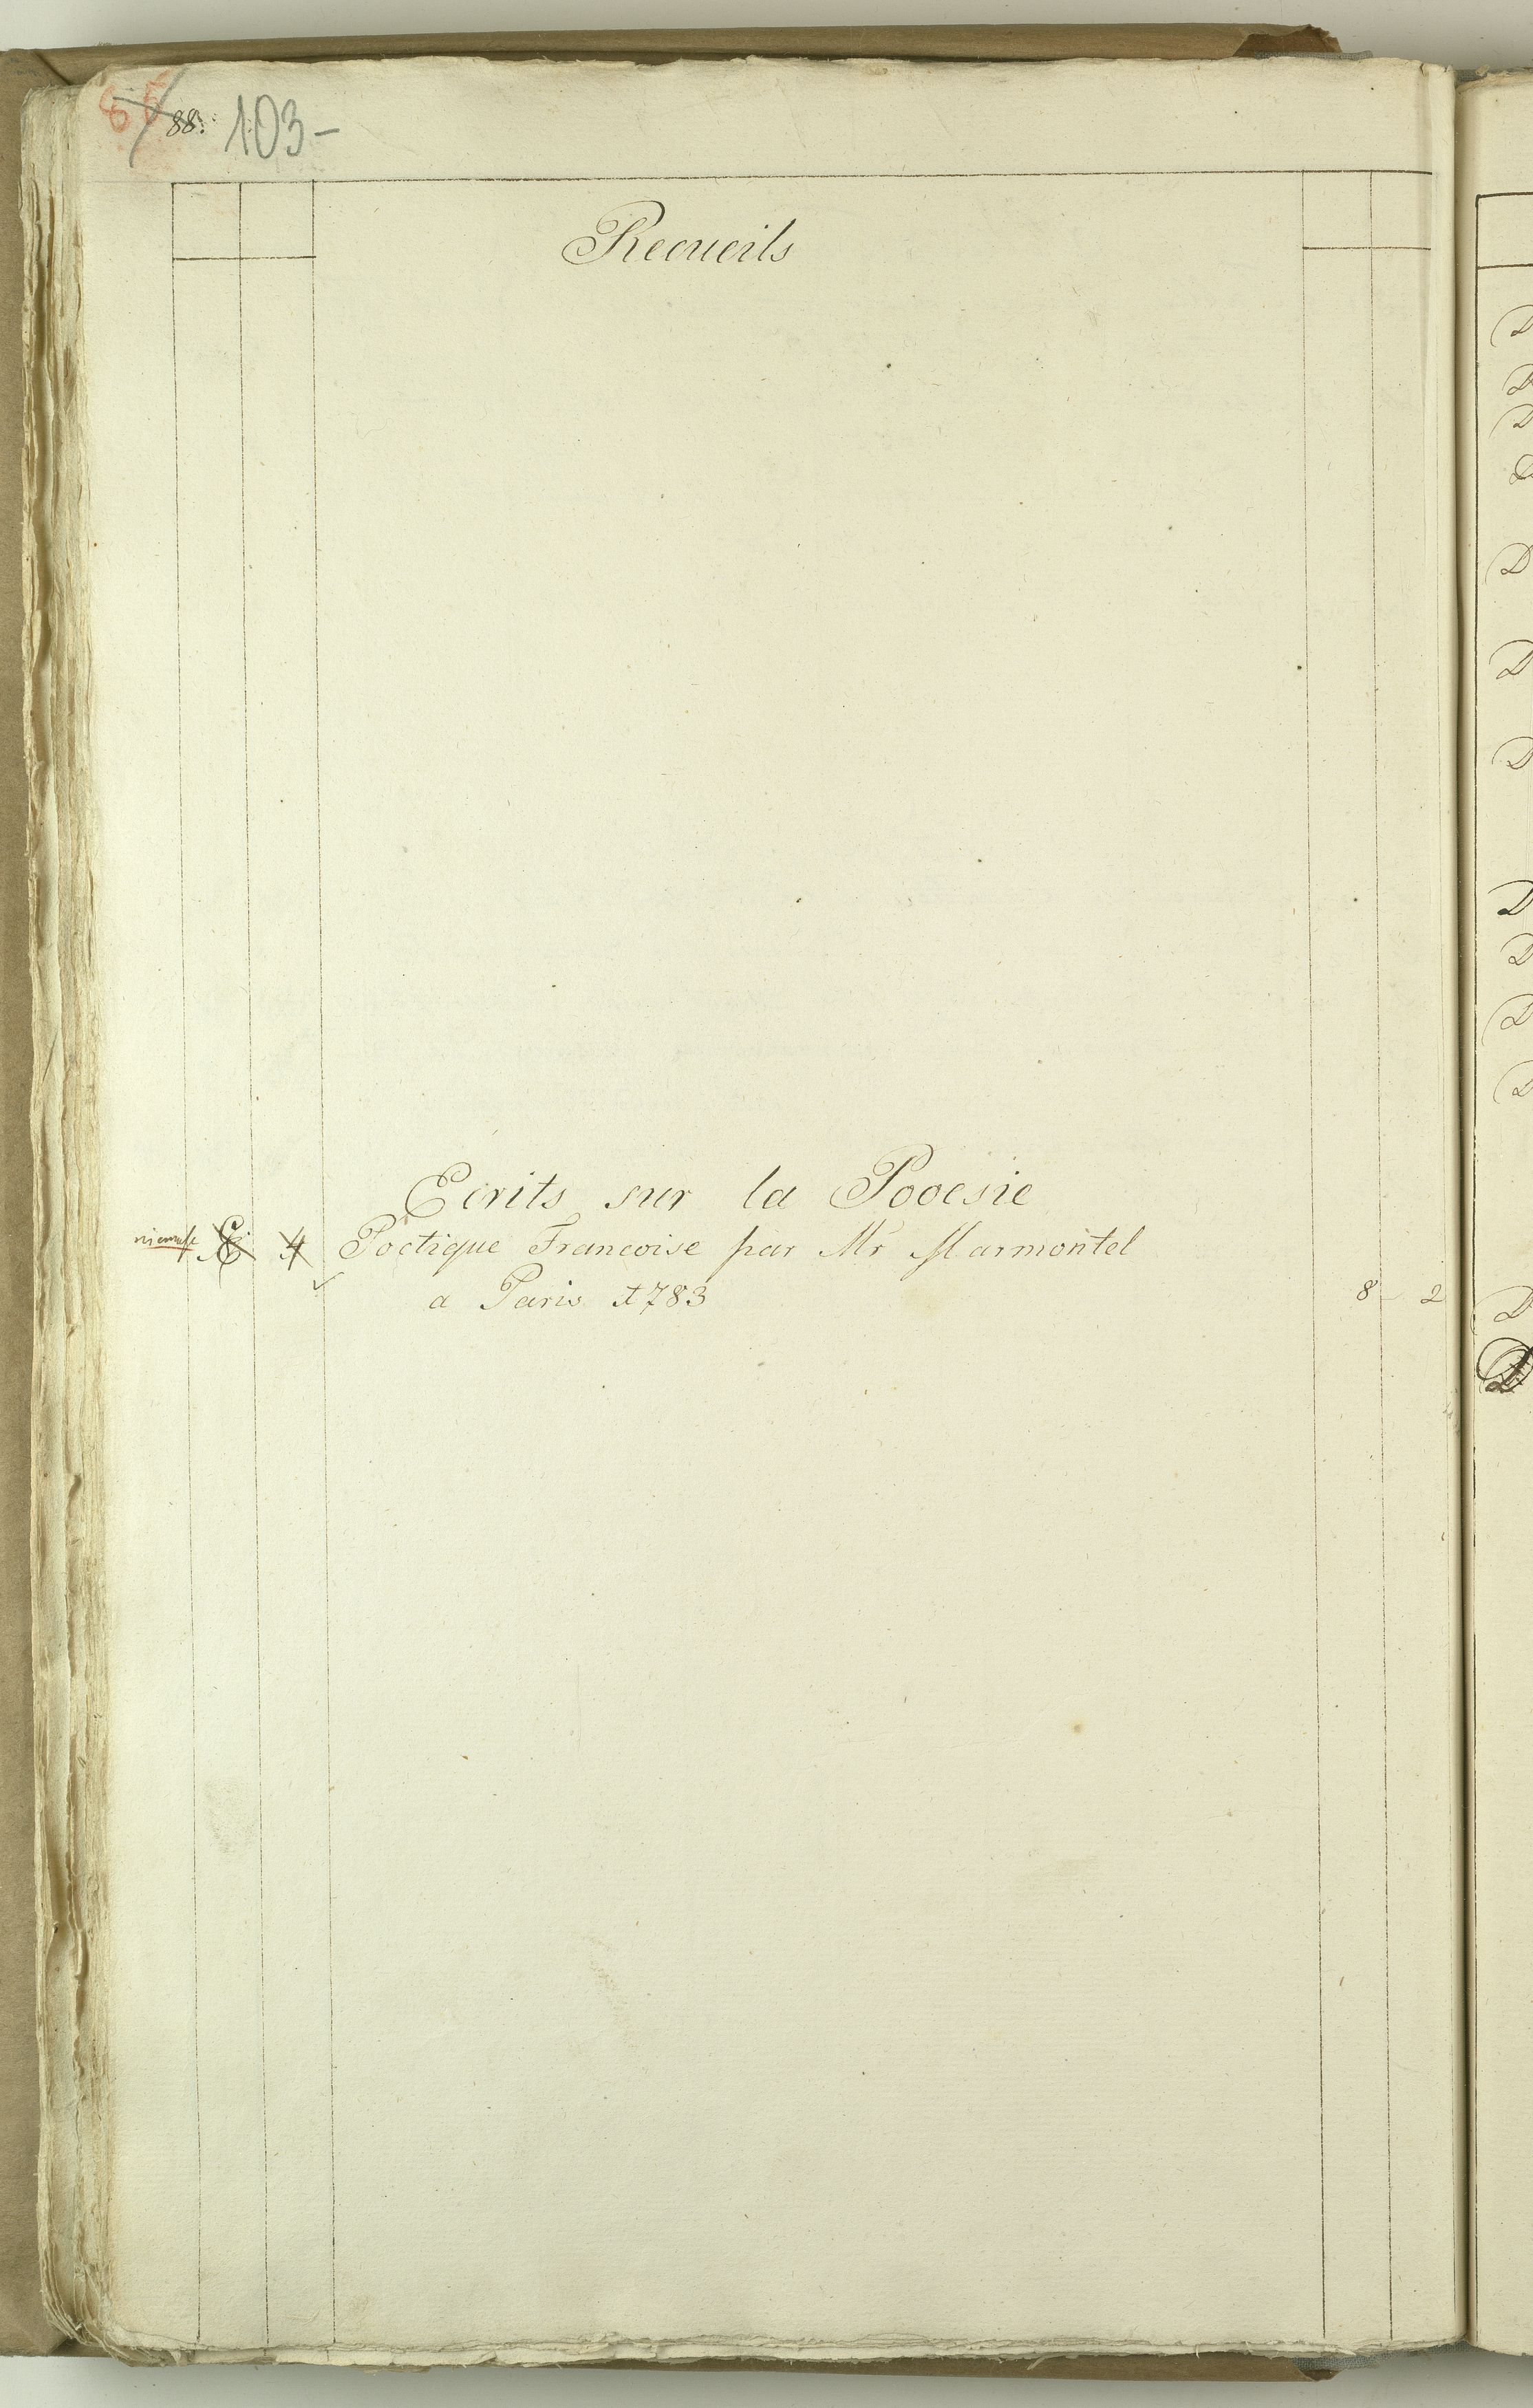 88. 103-
Recueils
Ecrits sur la Pooesie
E 4 Poetique Francoise par Mr Marmontel
a Paris 1783 8 - 2
D
D
D
D
D
D
D
D
D
D
D
D
D